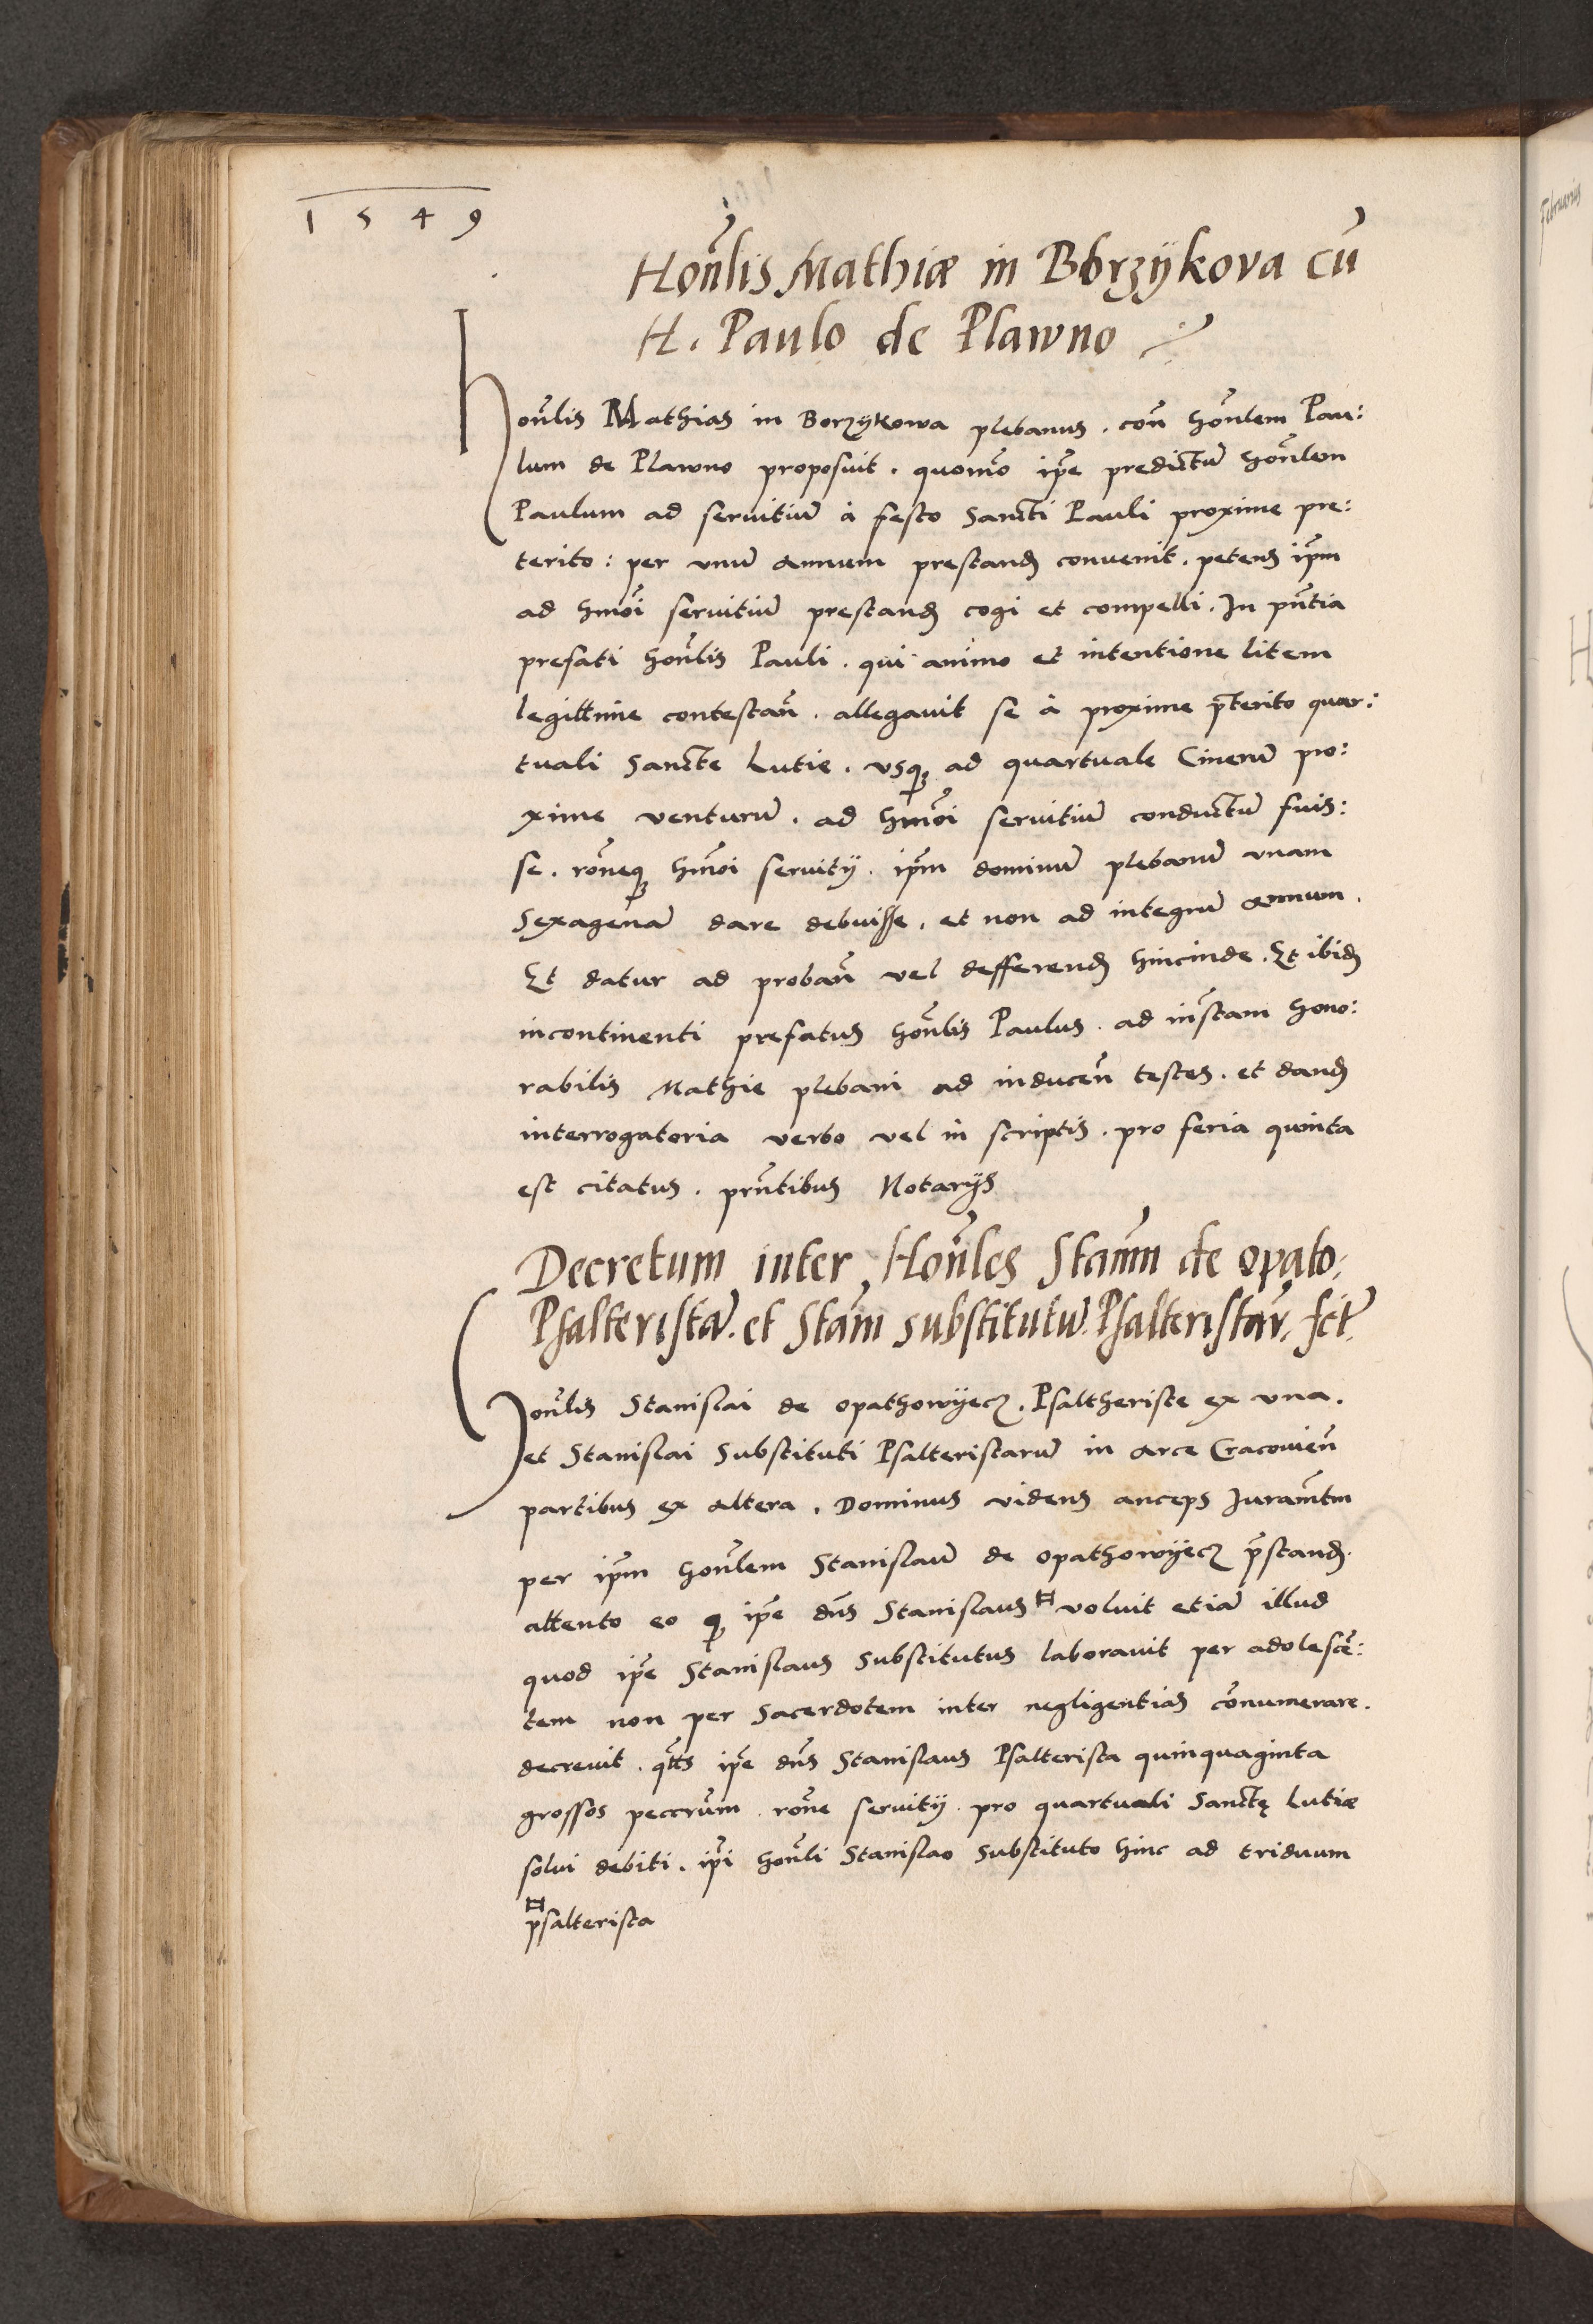 1549
Hon̄lis Mathiæ in Bborzÿkova cū
H. Paulo de Plawno
Hon̄lis Mathias in Borzÿkowa plebanus . con̄ hon̄lem Pau:
lum de Plawno proposuit . quomō ip̄e predictū hon̄lem
Paulum ad seruitiū à festo Sancti Pauli proxime pre:
terito : per vnū annum prestand convenit . petens ip̄m
ad hmōi seruitiū prestand cogi et compelli . In pn̄tia
prefati hon̄lis Pauli . qui animo et intentione litem
legittime contestan̄ . allegavit se à proxime p̄terito quar:
tuali Sancte Lutie . vsq ad quartuale Cinerū pro:
xime venturū . ad hmōi seruitiū conductū fuis:
se . rōneq hmōi seruitÿ . ip̄m dominū plebanū vnam
Sexagenā dare debuisse , et non ad integrū annum .
Et datur ad proban̄ vel defferend hincinde . Et ibid
incontinenti prefatus hon̄lis Paulus . ad instam̄ hono:
rabilis Mathie plebani ad inducen̄ testes . et dand
interrogatoria verbo vel in scriptis . pro feria quinta
est citatus . prn̄tibus Notarÿs
Decretum inter Hon̄les Stan̄m de opato,
Psalteristā . et Stan̄m substitutū Psalteristar̄ . fct̄
Hon̄lis Stanislai de opathowÿecz . Psaltheriste ex vna .
et Stanislai Substituti Psalteristarū in arce Cracovien̄
partibus ex altera . Dominus videns anceps Juramn̄tm
per ip̄m hon̄lem Stanislaū de opathowÿecz p̄stand .
attento eo q ip̄e dn̄s Stanislaus ⌗ voluit etiā illud
quod ip̄e Stanislaus Substitutus laborauit per adolescē:
tem non per Sacerdotem inter negligentias cōnumerare .
decrevit . qtt̄s ip̄e dn̄s Stanislaus Psalterista quinquaginta
grossos peccrūm . rōne seruitÿ . pro quartuali Sanctę Lutiæ
solui debiti . ip̄i hon̄li Stanislao Substituto hinc ad triduum
⌗
psalterista
Februarius